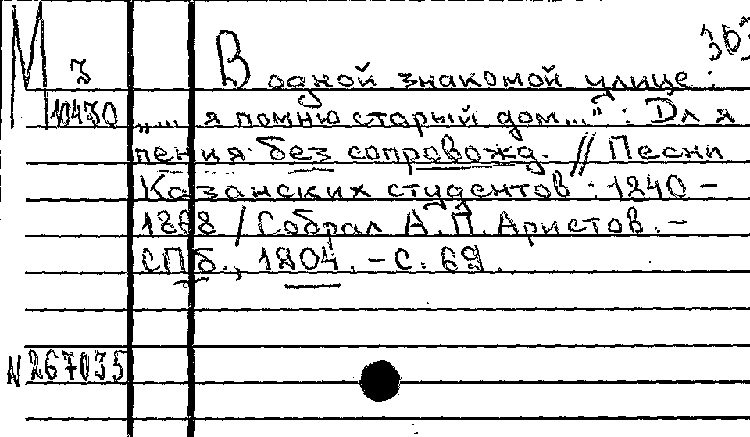 М З 10430
В одной знакомой улице :
„... я помню старый дом..." : Для
пения без сопровожд. // Песни
Казанских студентов : 1840 –
1868 / Собрал А.П. Аристов. –
СПб., 1904. – С. 69.
N 267035